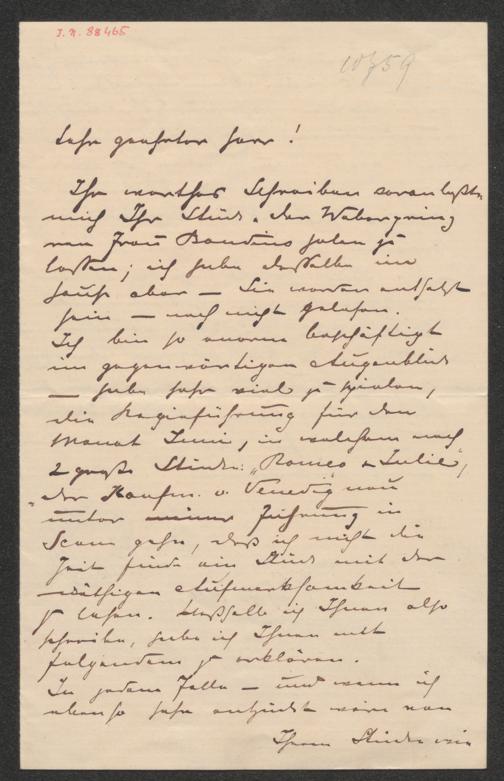 I.N. 88465
Sehr geehrter Herr!
Ihr werthes Schreiben veranlaßte
mich Ihr Stück „Der Weber
von Frau Baudius holen zu
lassen; ich habe dasselbe im
Hause aber – Sie werden entsetzt
sein – noch nicht gelesen.
Ich bin so enorm beschäftigt
im gegenwärtigen Augenblick
– habe sehr viel zu spielen,
die Regieführung für den
Monat Juni, in welchem noch
2 große Stücke: „Romeo u Julie",
„der Kaufm. v. Venedig neu
unter meiner Führung in
Scene gehn, daß ich nicht die
Zeit finde ein Stück mit der
nöthigen Aufmerksamkeit
zu lesen. Weßhalb ich Ihnen also
schreibe, habe ich Ihnen mit
folgendem zu erklären.
In jedem Falle – und wenn ich
ebenso sehr entzückt wäre von
Ihrem Stücke wie